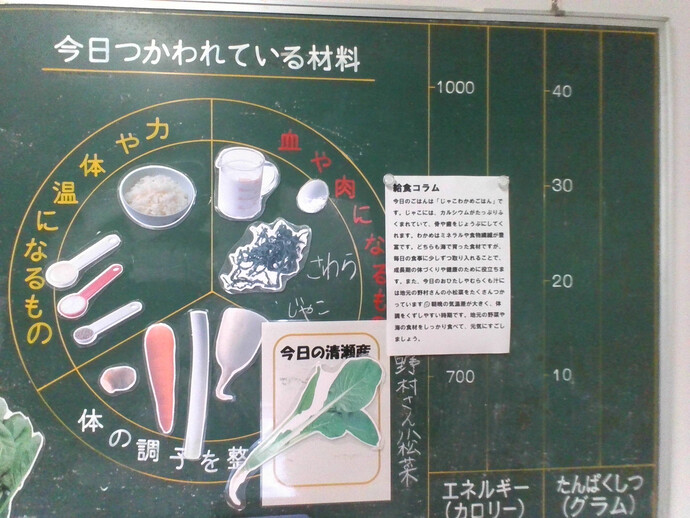 今日つかわれている材料
体や力
温になるもの
血や肉になるも
さわら
じゃこ
体の調子を整
今日の清瀬産
野村さん小松菜
給食コラム
今日のごはんは「じゃこわかめごはん」で
す。じゃこには、カルシウムがたっぷりふ
くまれていて、骨や歯をじょうぶにしてく
れます。わかめはミネラルや食物繊維が豊
富です。どちらも海で育った食材ですが、
毎日の食事に少しずつ取り入れることで、
成長期の体づくりや健康のために役立ちま
す。また、今日のおひたしやむらくも汁に
は地元の野村さんの小松菜をたくさんつか
っています😊朝晩の気温差が大きく、体
調をくずしやすい時期です。地元の野菜や
海の食材をしっかり食べて、元気にすごし
ましょう。
1000
700
エネルギー
(カロリー)
40
30
20
10
たんぱくしつ
(グラム)